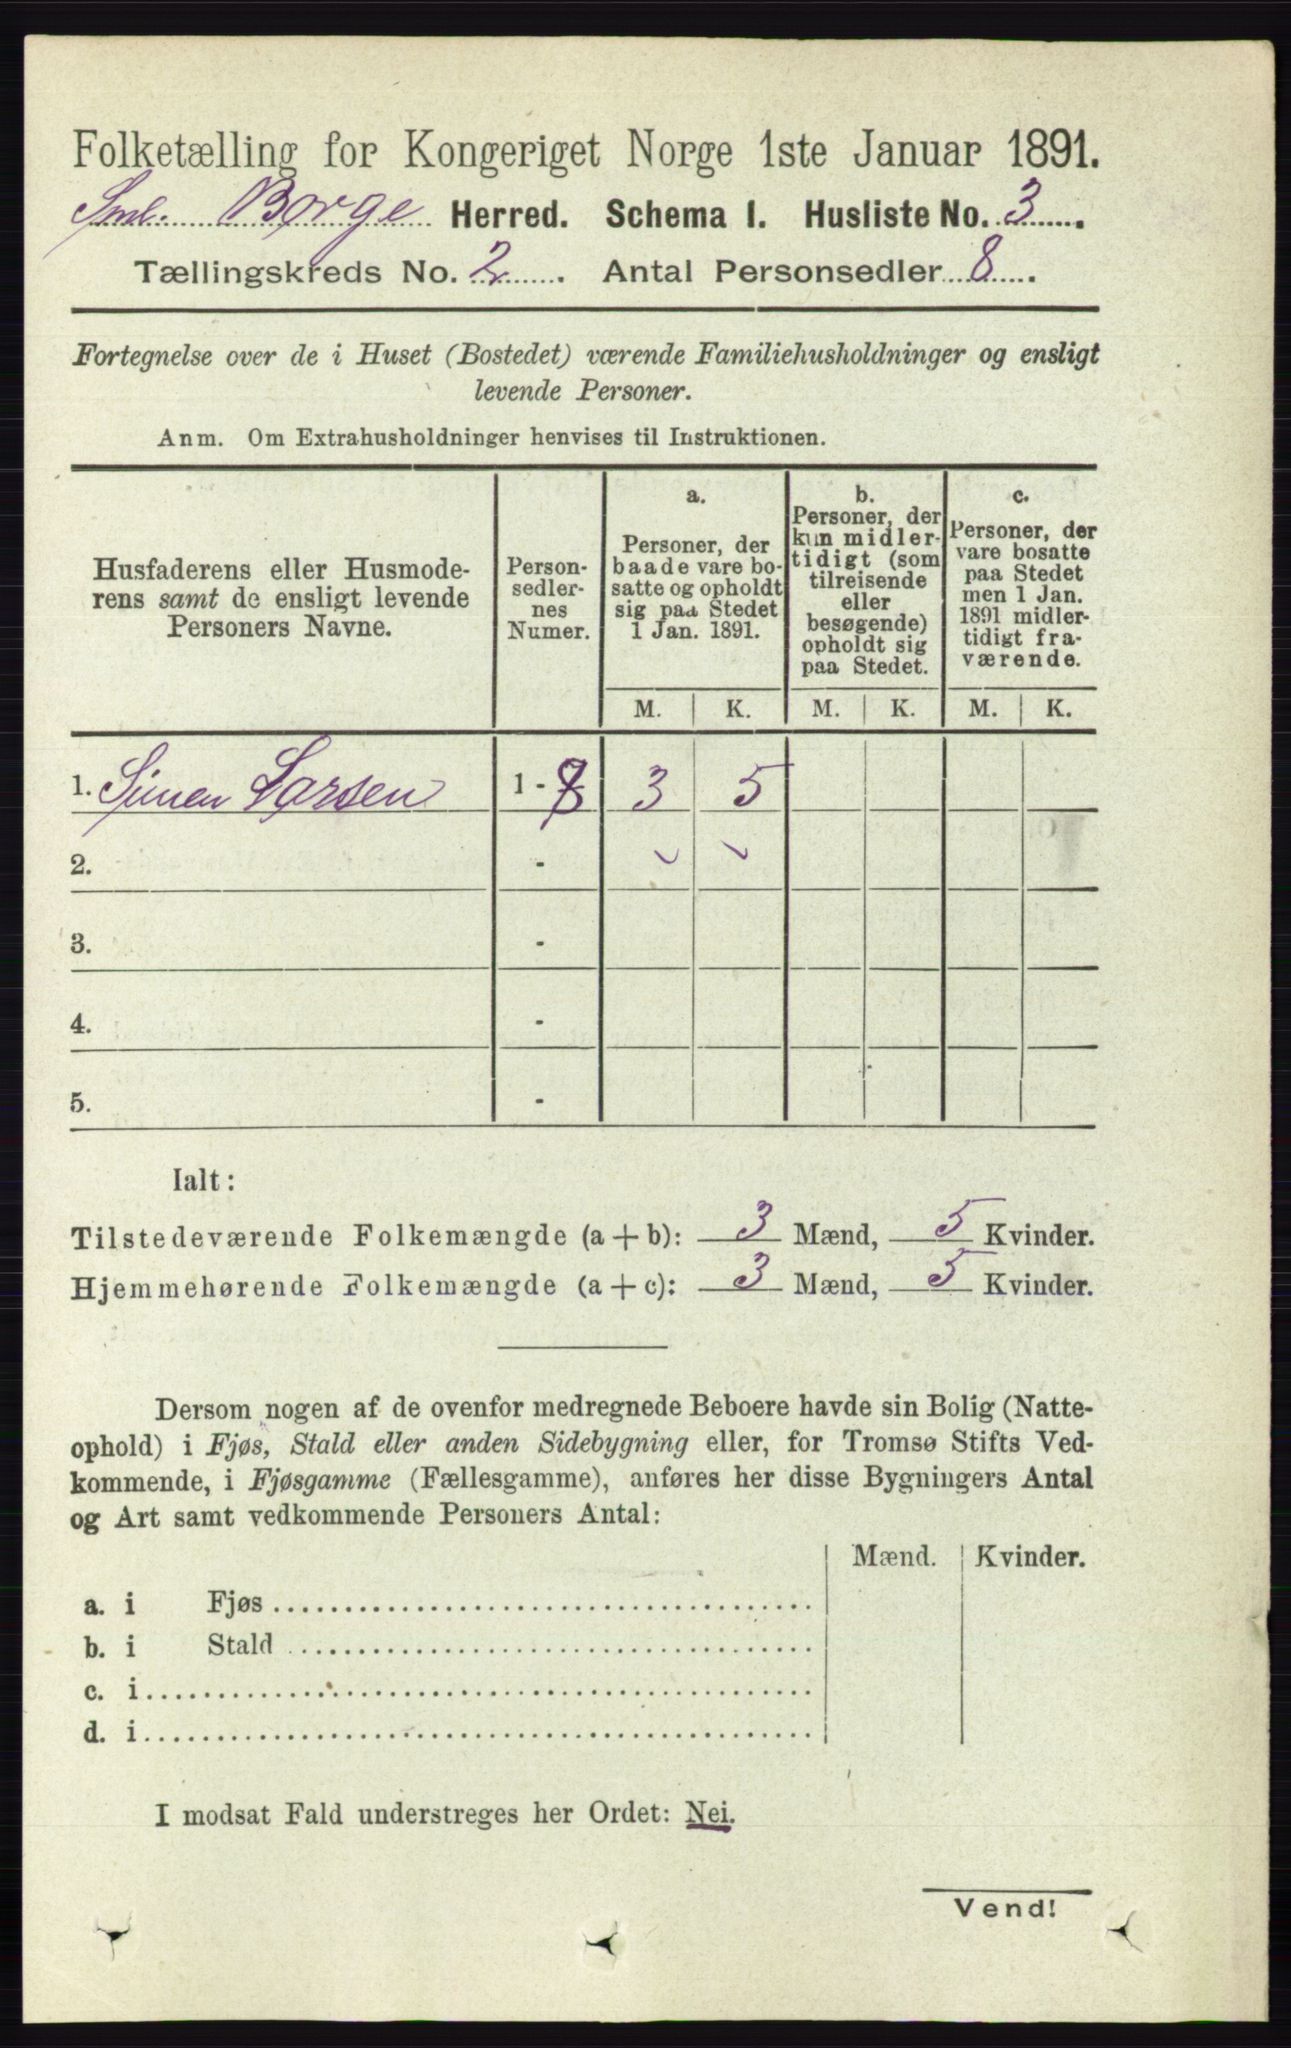 Folketælling for Kongeriget Norge 1ste Januar 1891.
Sml. Borge Herred. Schema I. Husliste No. 3
Tællingskreds No. 2. Antal Personsedler 8.
Fortegnelse over de i Huset (Bostedet) værende Familiehusholdninger og ensligt
levende Personer.
Anm. Om Extrahusholdninger henvises til Instruktionen.
Husfaderens eller Husmode-
rens samt de ensligt levende
Personers Navne.
Person-
sedler-
nes
Numer.
a.
Personer, der
baade vare bo-
satte og opholdt
sig paa Stedet
1 Jan. 1891.
b.
Personer, der
kun midler-
tidigt (som
tilreisende
eller
besøgende)
opholdt sig
paa Stedet.
c.
Personer, der
vare bosatte
paa Stedet
men 1 Jan.
1891 midler-
tidigt fra-
værende.
M. K. M. K. M. K.
1. Simen Larsen 1 - 8 3 5
2. -
3. -
4. -
5. -
Ialt:
Tilstedeværende Folkemængde (a + b): 3 Mænd, 5 Kvinder.
Hjemmehørende Folkemængde (a + c): 3 Mænd, 5 Kvinder.
Dersom nogen af de ovenfor medregnede Beboere havde sin Bolig (Natte-
ophold) i Fjøs, Stald eller anden Sidebygning eller, for Tromsø Stifts Ved-
kommende, i Fjøsgamme (Fællesgamme), anføres her disse Bygningers Antal
og Art samt vedkommende Personers Antal:
Mænd. Kvinder.
a. i Fjøs
b. i Stald
c. i
d. i
I modsat Fald understreges her Ordet: Nei.
Vend!